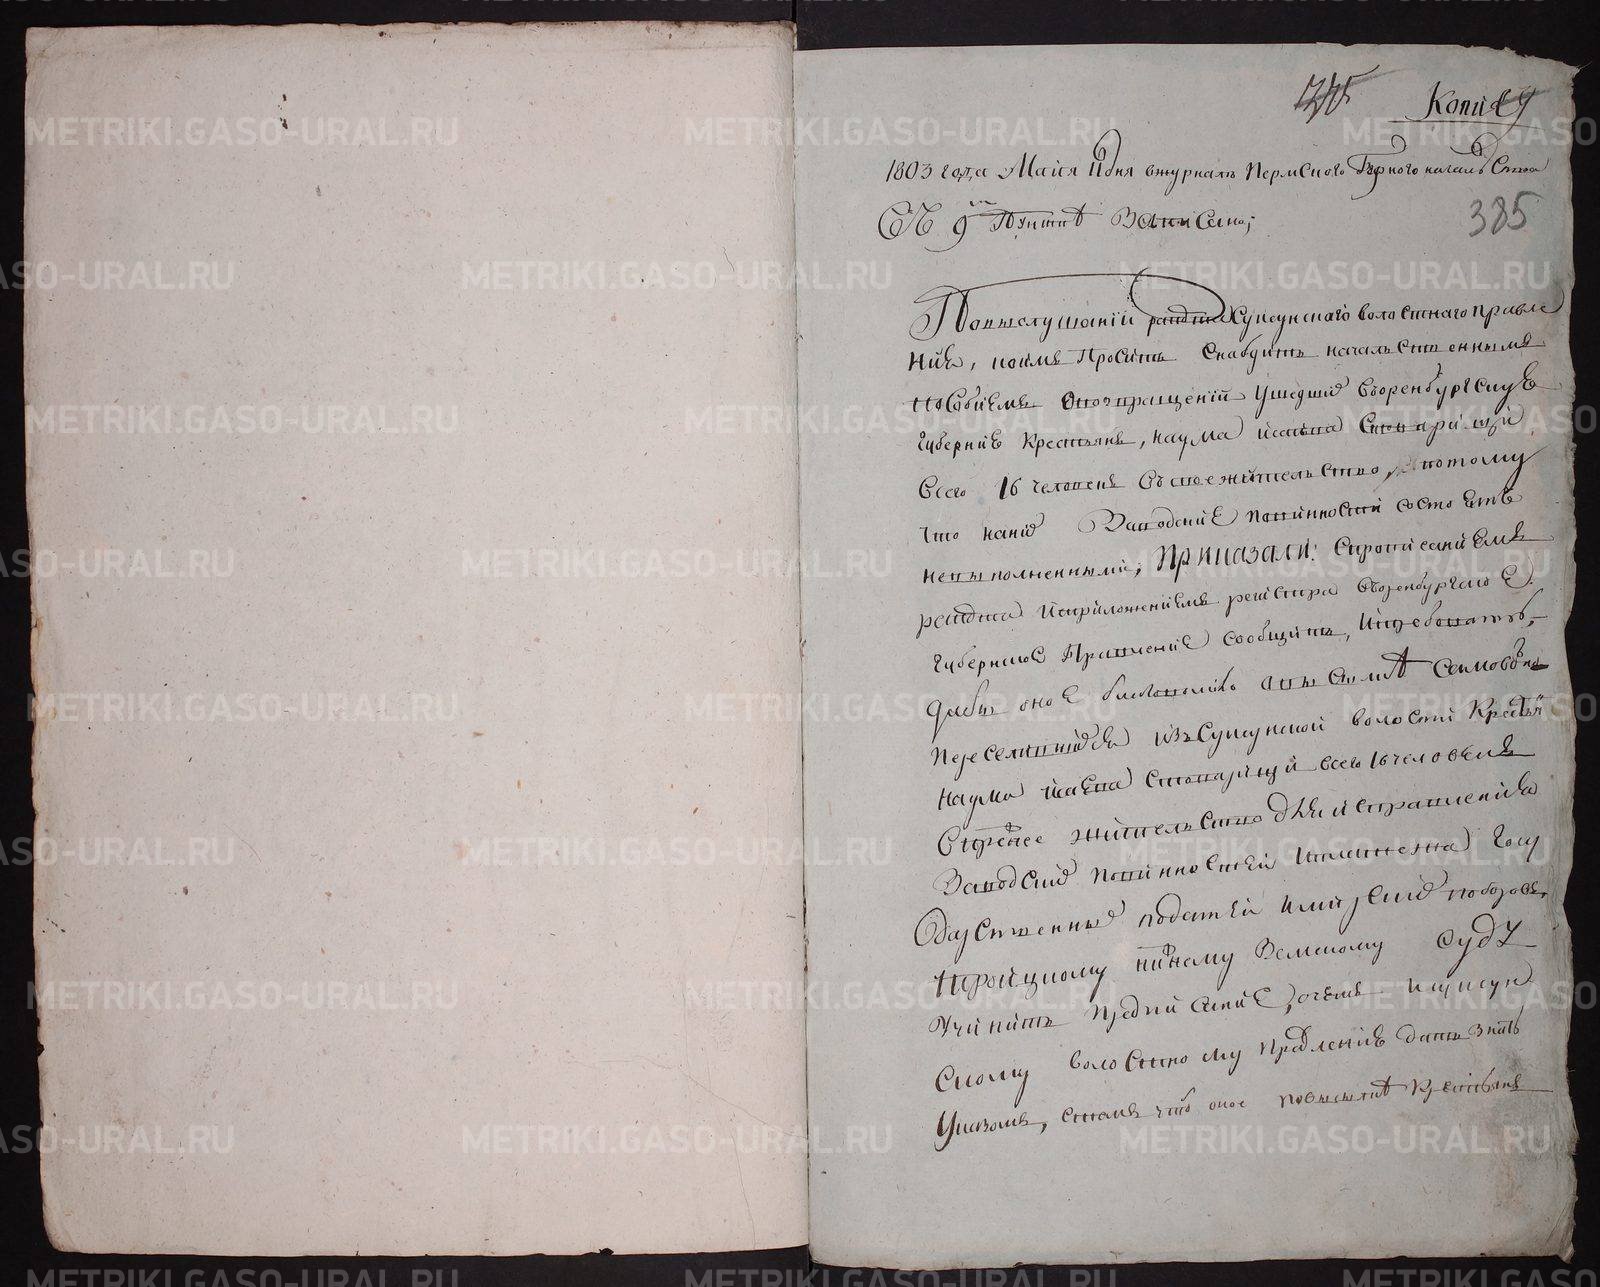 Копия
1803 года Майя дня вжурнале Пермского Горного началства
385
Сь 9 пункте Записано;
Повыслушании рапорта Суксунскаго волостнаго правле
ния, коимъ Проситъ снабдить началственнымъ
пособиемъ овозвращении ушедших воренбургскую
губернию крестьянъ, наума исаева стоварищи
всего 16 человекъ всвоежительство, потому
что наних Заводские повинности состоятъ
невыполненными; Приказали: спрописаниемъ
рапорта исприложениемъ регистра воренбургское
губернское Правление сообщить, ипотребовать,
дабы оное благоволило выслать самовольно
переселившихся изъ Суксунской волости крестьян
наума исаева стоварищи всего 16 человекъ
впрежнее жительство для исправления
Заводских повинностей иплатежа Госу
дарственных податей имирских поборовъ,
Троицкому нижнему Земскому суду
учинить предписание, очемъ исуксун
скому волостному правлению дать знать
указомъ, стемъ что оное повысылке крестьянъ